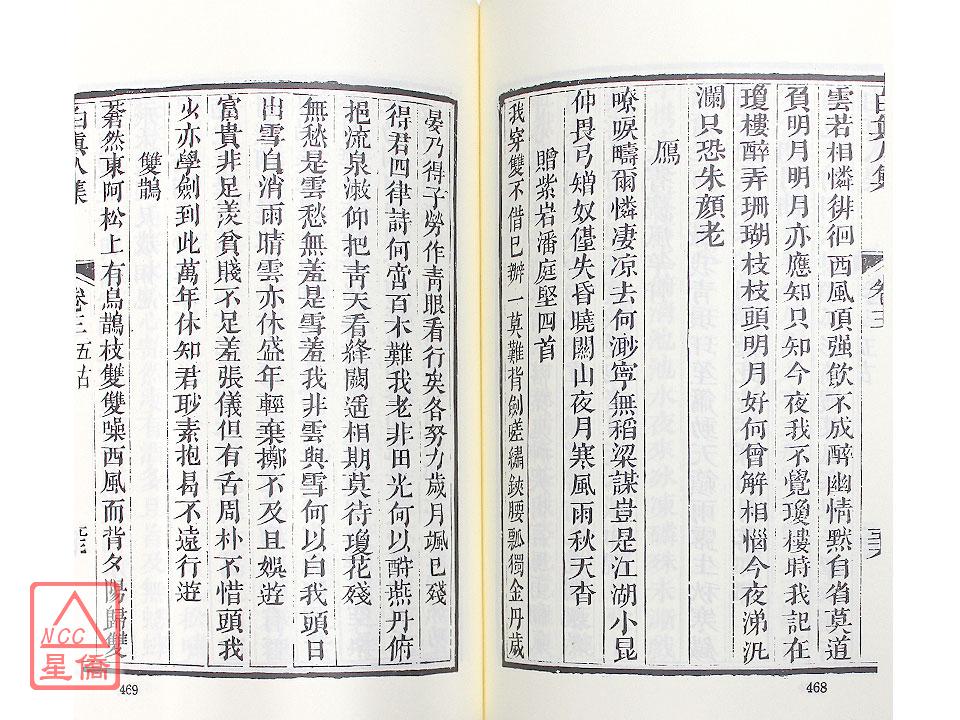 白眞人集
卷三
雲若相憐徘徊西風頂强飲不成醉幽情黙自省莫道
負明月明月亦應知只知今夜我不覺瓊樓時我記在
瓊樓醉弄珊瑚枝枝頭明月好何曾解相惱今夜涕汍
瀾只恐朱顔老
鴈
嘹唳疇爾憐凄凉去何渺寧無稻粱謀豈是江湖小昆
仲畏弓矰奴僮失昏曉關山夜月寒風雨秋天杳
贈紫岩潘庭堅四首
我穿雙不借已辦一莫難背劍嗟繡鋏腰瓢獨金丹歲
468
晏乃得子勞作靑眼看行矣各努力歲月颯已殘
得君四律詩何啻百木難我老非田光何以酧燕丹俯
挹流泉漱仰把靑天看絳闕遥相期莫待瓊花殘
無愁是雲愁無羞是雪羞我非雲與雪何以白我頭日
出雪自消雨晴雲亦休盛年輕棄擲不及且娛遊
富貴非足羨貧賤不足羞張儀但有舌周朴不惜頭我
少亦學劍到此萬年休知君耿素抱曷不遠行遊
雙鵲
蒼然東阿松上有烏鵲枝雙雙噪西風而背夕陽歸雙
白眞人集
卷三
五古
469
NCC
星僑